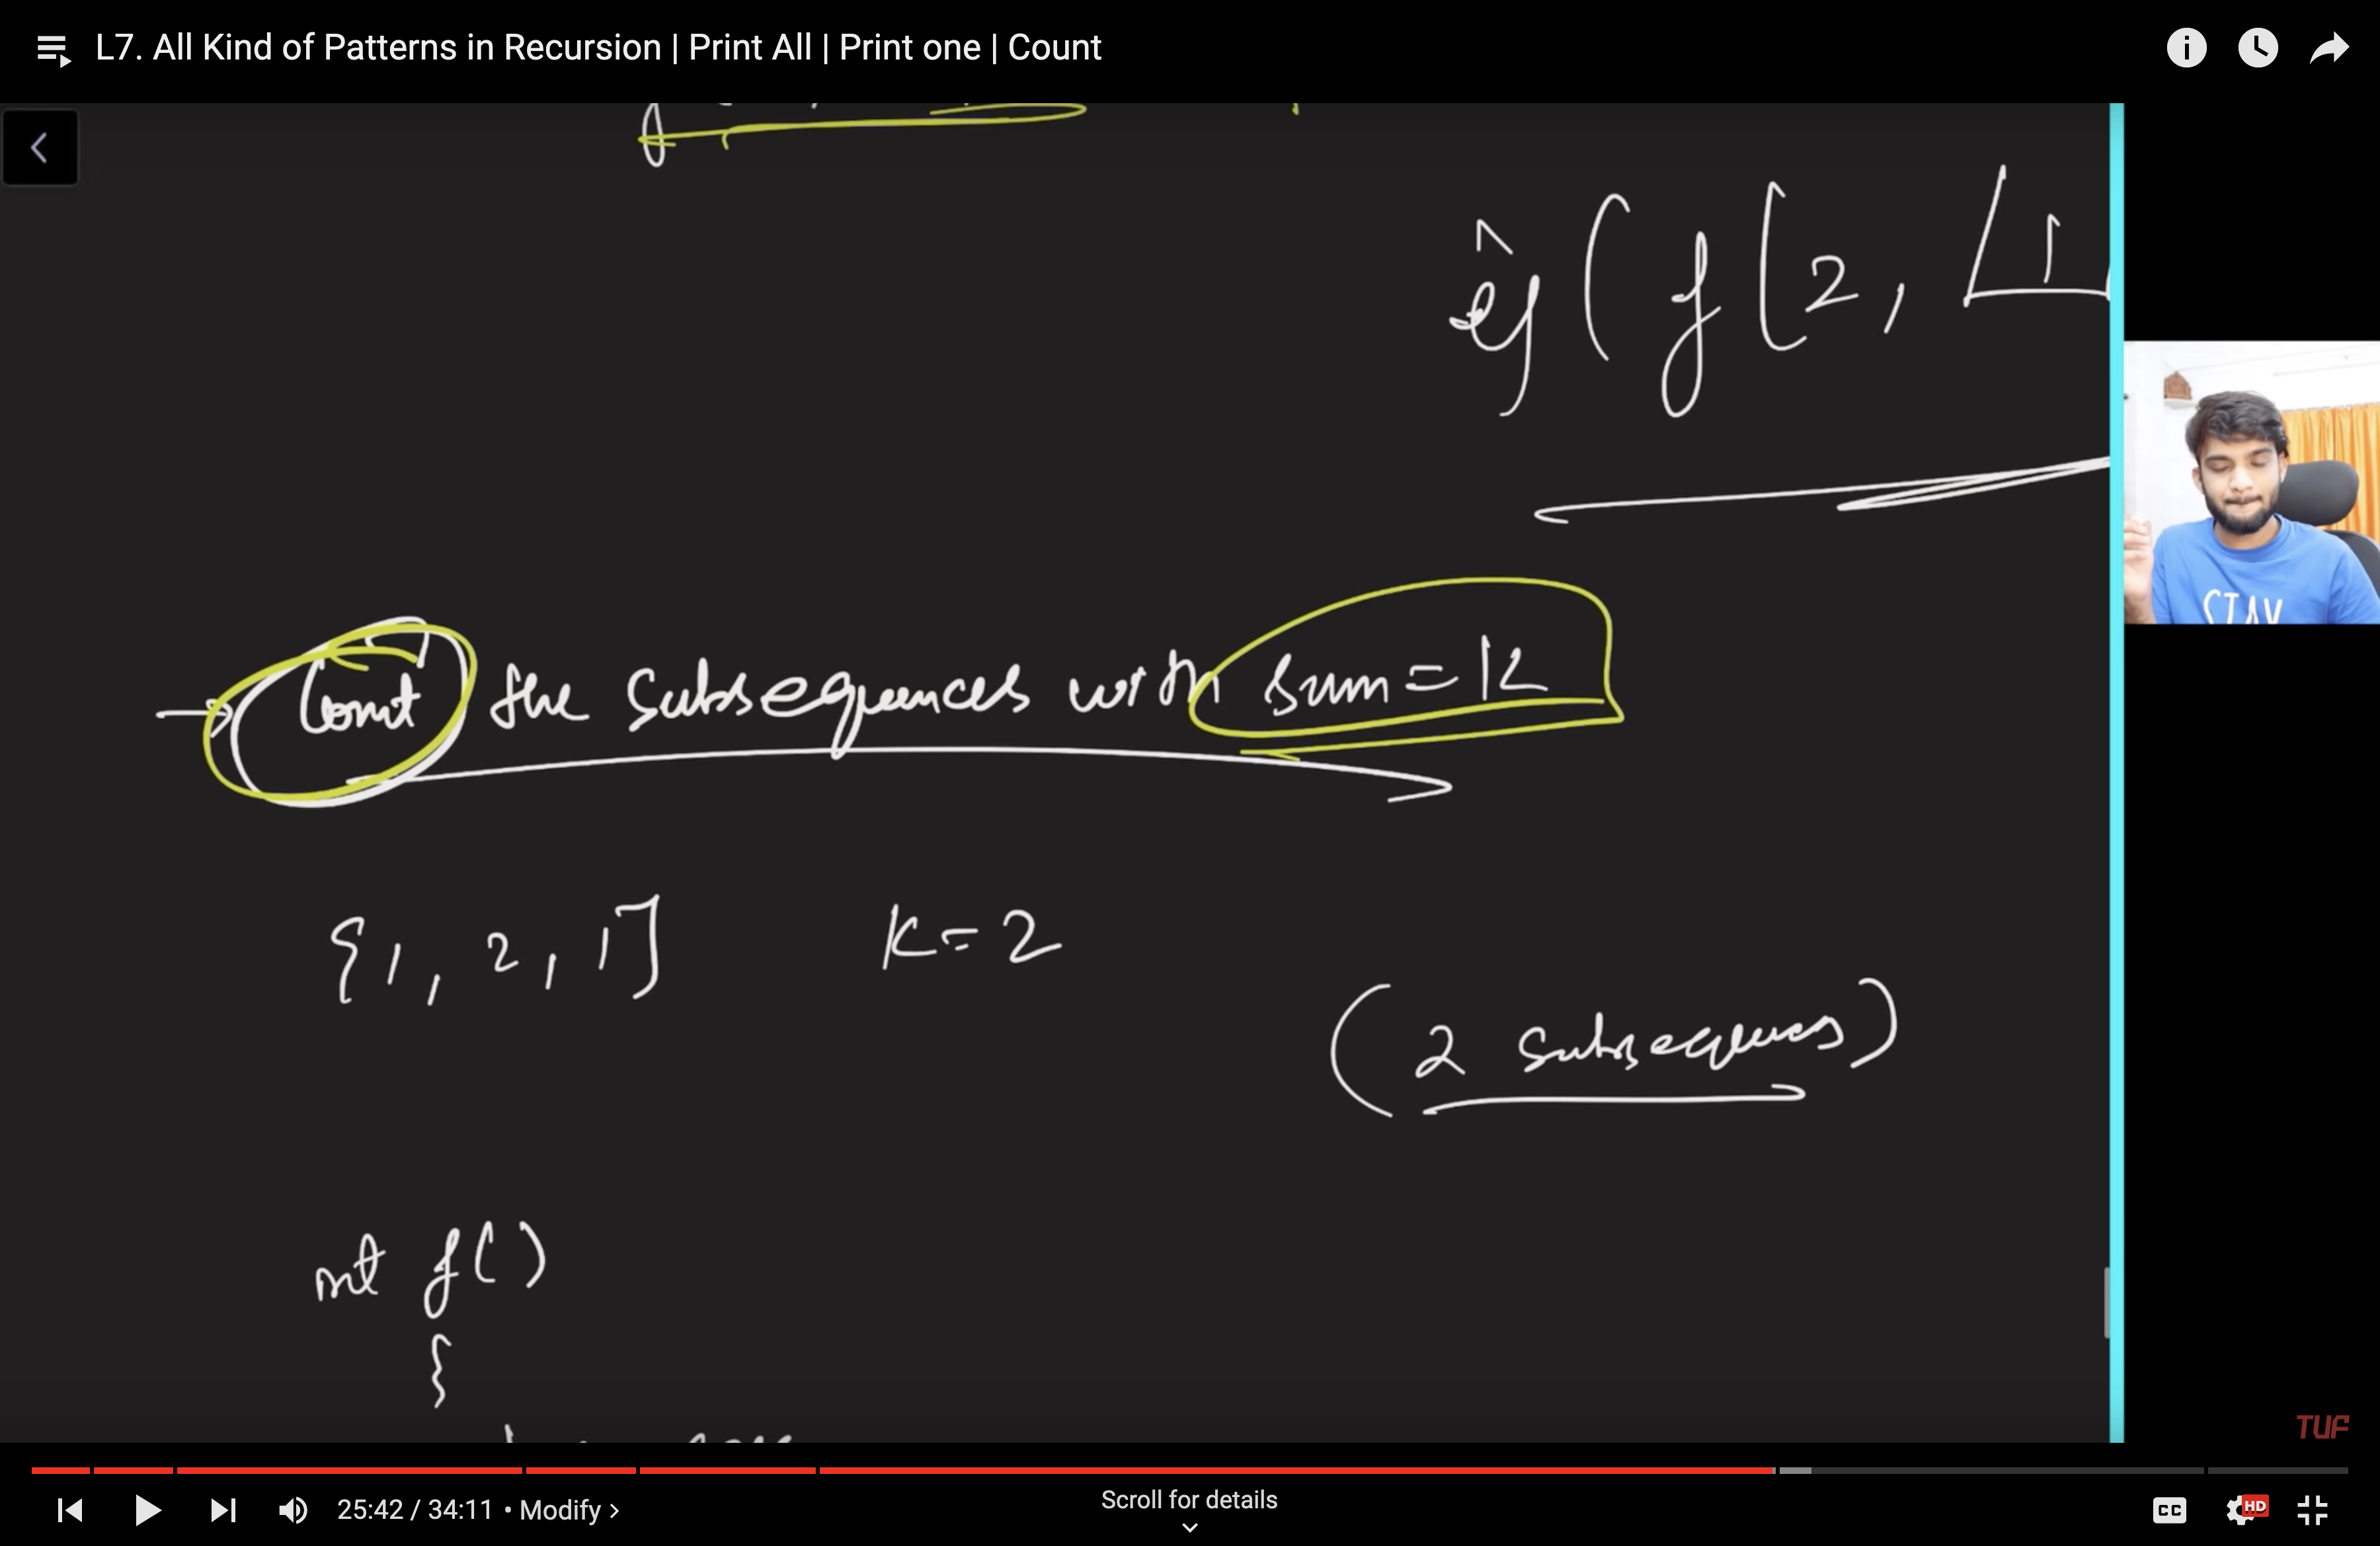 L7. All Kind of Patterns in Recursion | Print All | Print one | Count
if ( f(2, 1
→ Count the subsequences with sum = K
STAY
{1, 2, 1] K = 2
(2 subsequences)
int f()
{
TUF
25:42 / 34:11 • Modify >
Scroll for details
CC HD